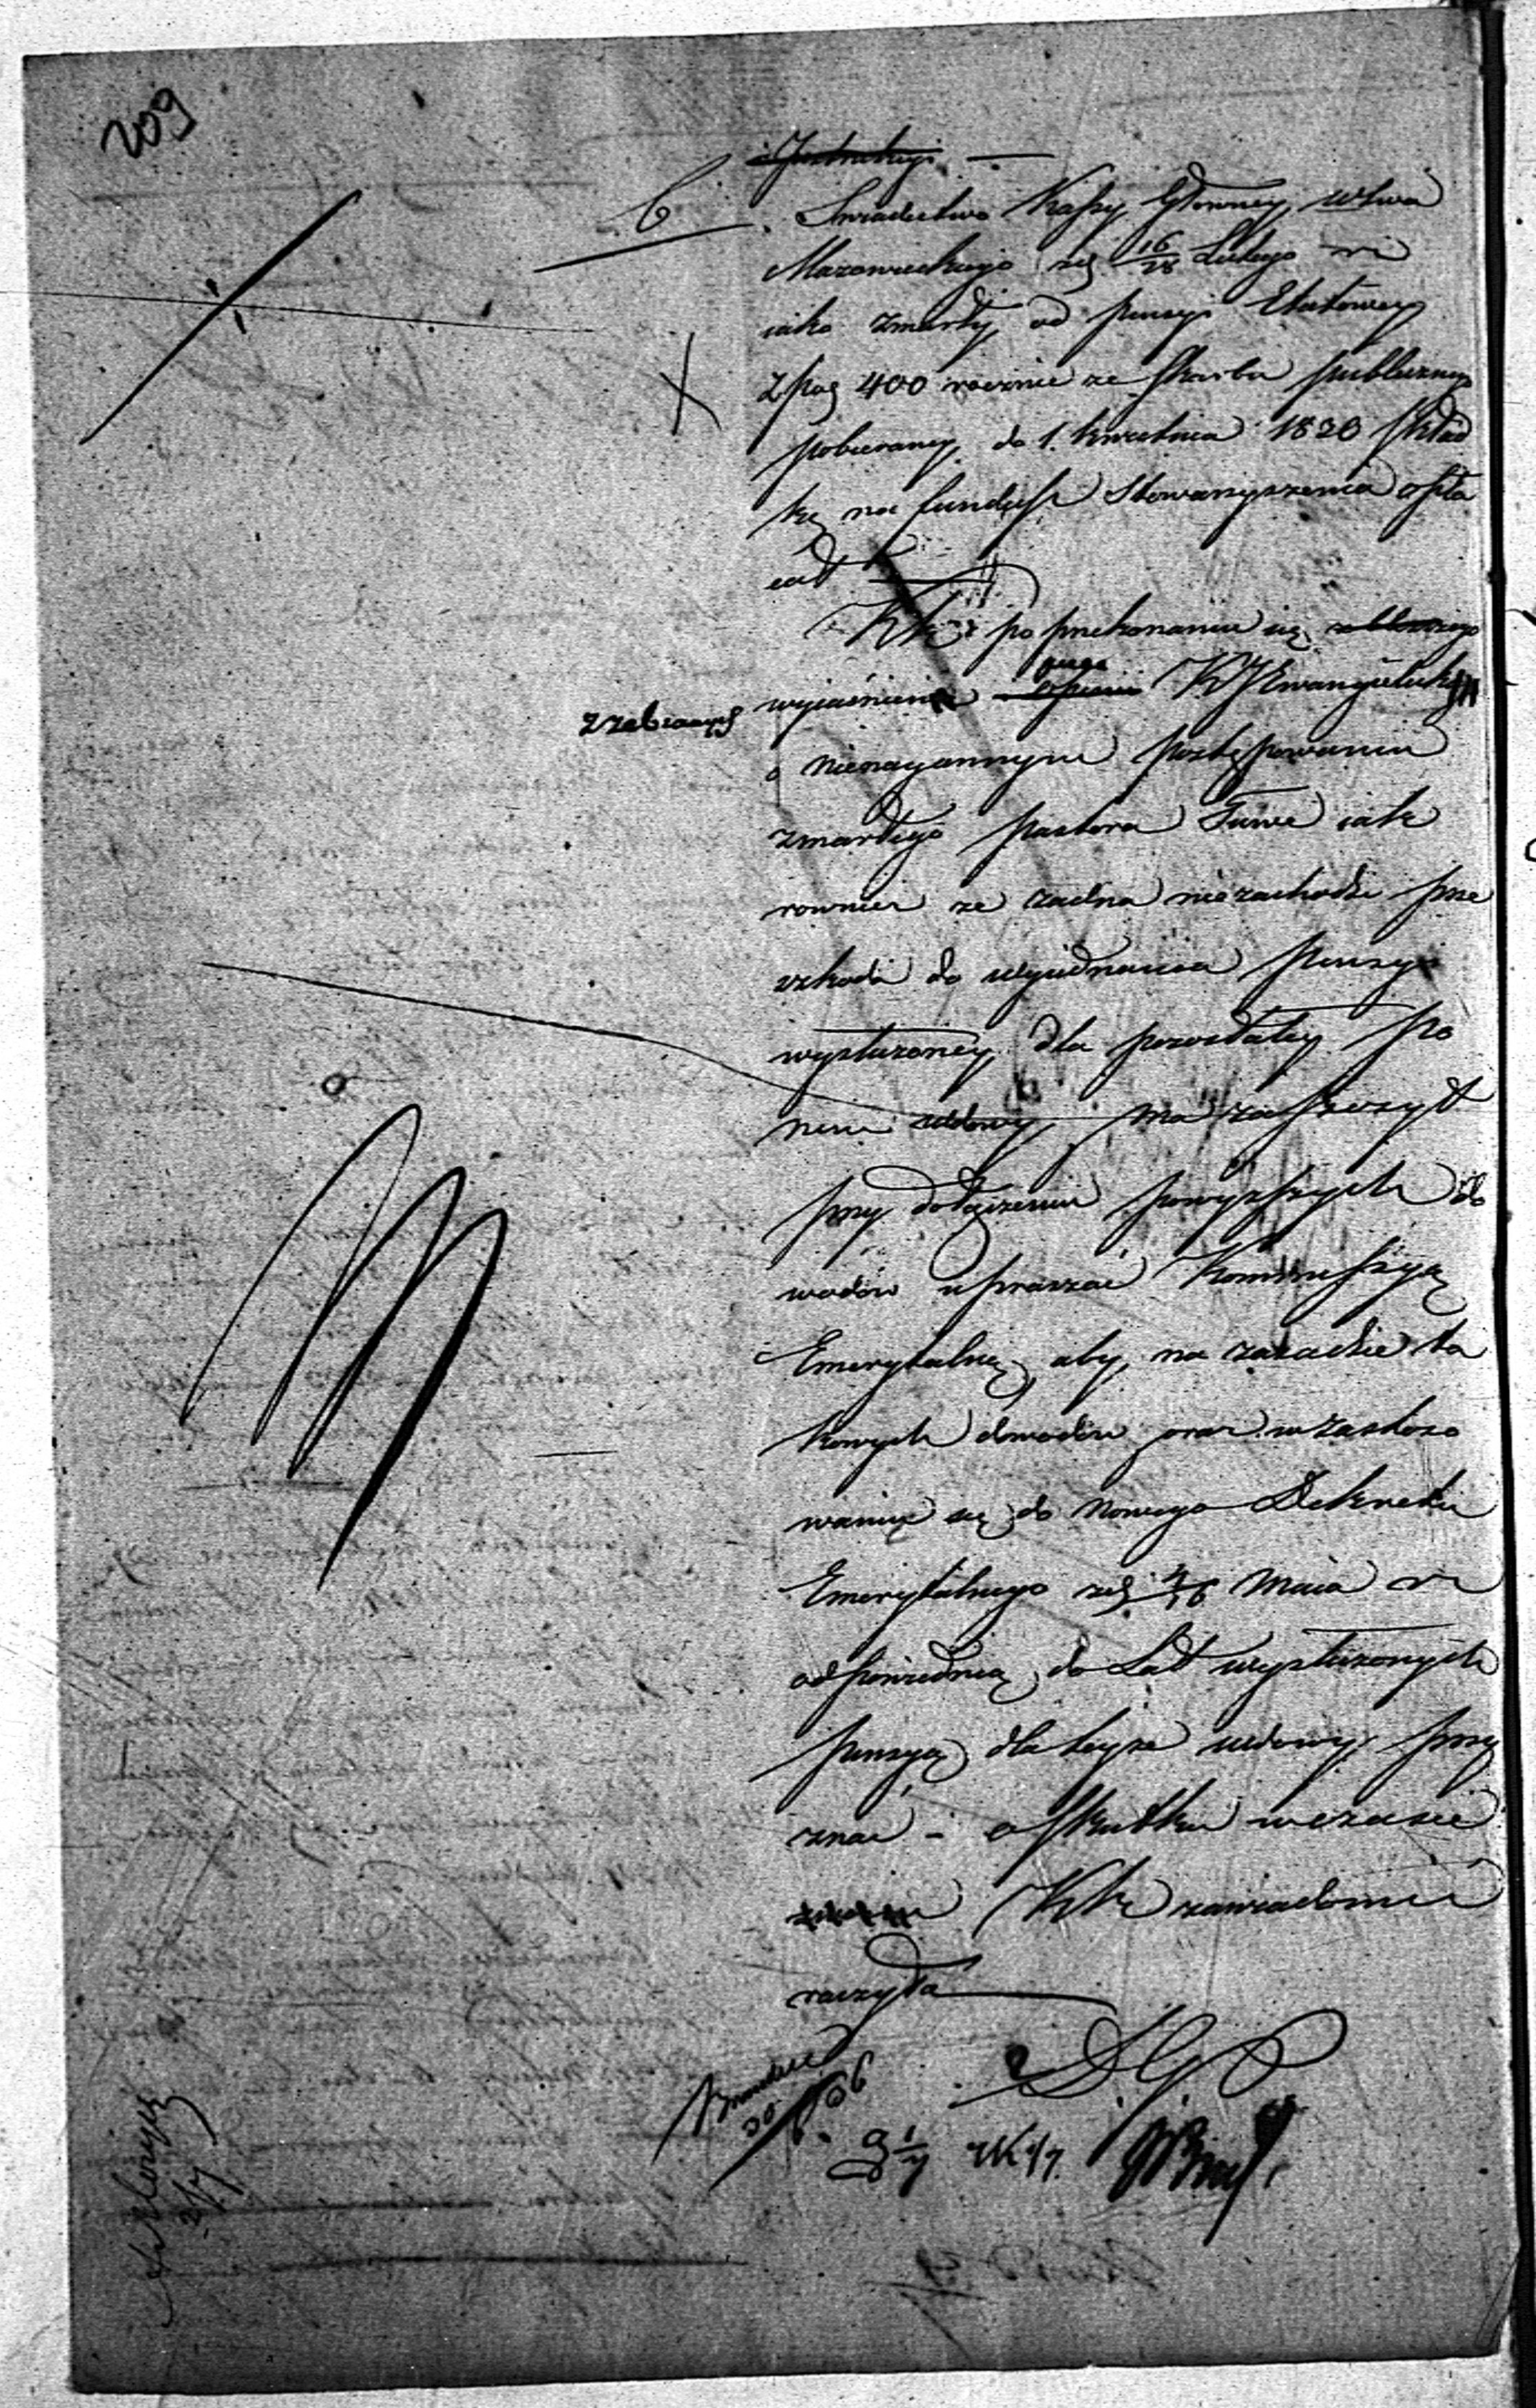 209
6. Swiadectwo Kassy Głowney Wztwa
Mazowieckiego zdj 16/28 Lutego rb
iako zmarły od pensyi Etatowey
Złpoj 400 rocznie ze skarbu publicznego
pobieraney do 1. kwietnia 1828 skład
kę na fundusz Stowarzyszenia opła
cał
K.R. po przekonaniu się
zzebranych
wyiaśnienia przez KJEwangielicki
o nienagannym postępowaniu
zmarłego pastora Tuwe iako
rownież ze żadna niezachodzi prze
szkoda do wyiednania pensyi
wysłużoney dla pozostałey po
nim wdowy, ma zaszczyt
przy dołączeniu powyższych do
wodów upraszać Kommissyą
Emerytalną, aby na zasadzie ta
kowych dowodów oraz w zastoso
waniu się do Nowego Dekretu
Emerytalnego zdj 4/16 Maia rb
odpowiednią do Lat wysłużonych
pensyą dla teyże wdowy przy
znać - o skutku wczasie
KR zawiadomić
raczyła
D.G.
30/6 36